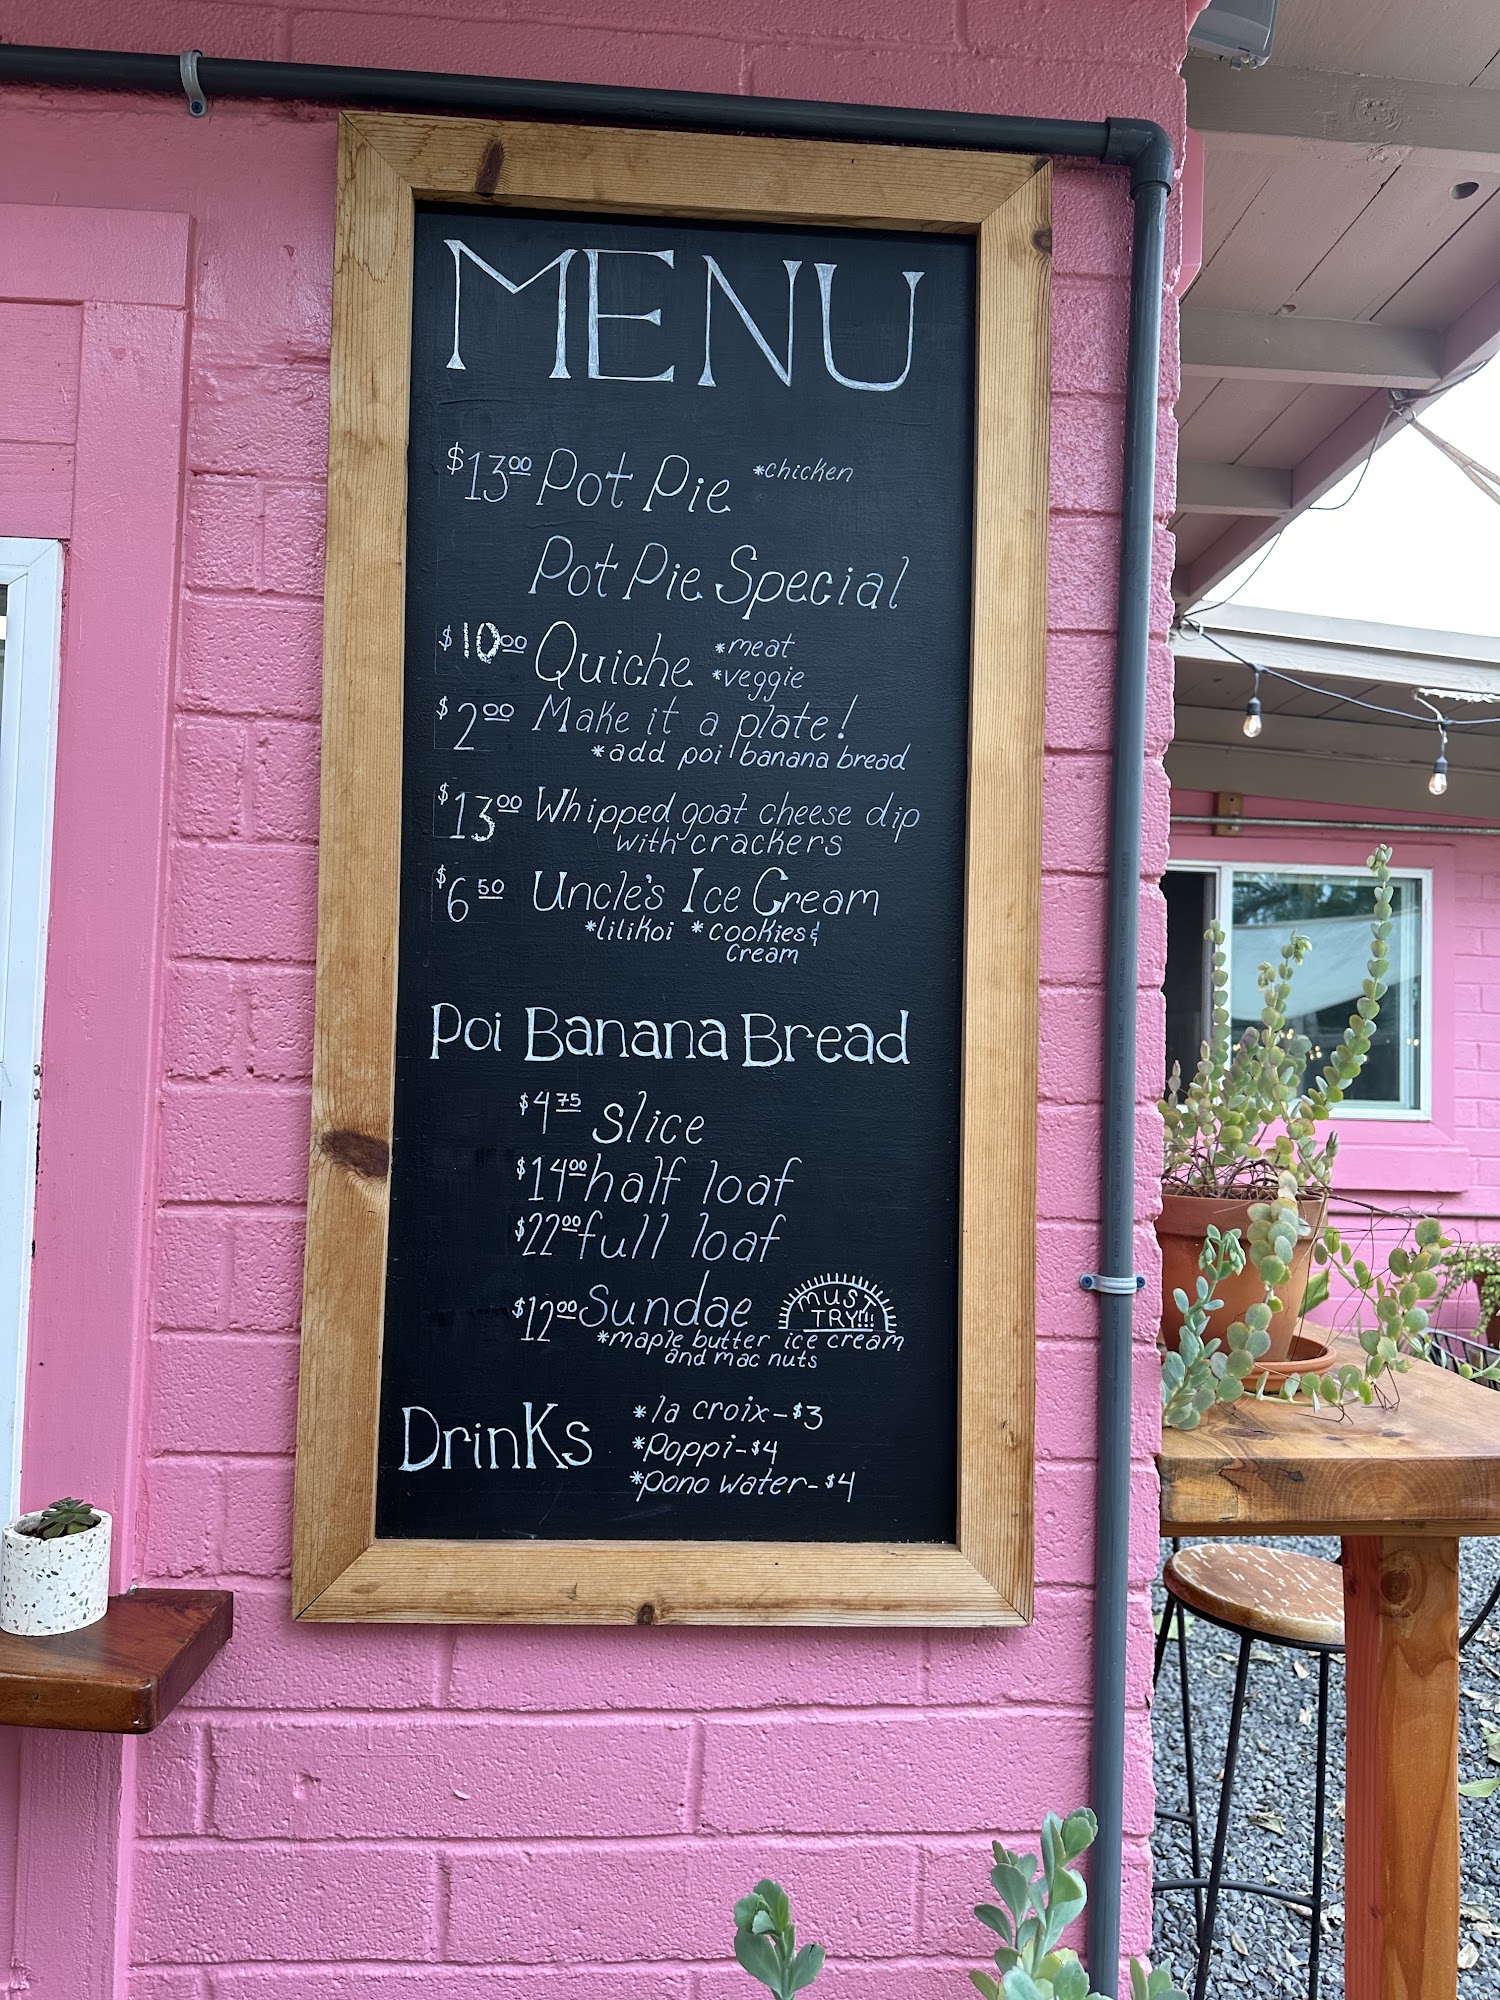 MENU
$13.00 Pot Pie *chicken
Pot Pie Special
$10.00 Quiche *meat
*veggie
$2.00 Make it a plate!
*add poi banana bread
$13.00 Whipped goat cheese dip
with crackers
$6.50 Uncle's Ice Cream
*lilikoi *cookies &
cream
Poi Banana Bread
$4.75 slice
$14.00 half loaf
$22.00 full loaf
$12.00 Sundae MUST TRY!!!
*maple butter ice cream
and mac nuts
Drinks
*la croix-$3
*poppi-$4
*pono water-$4